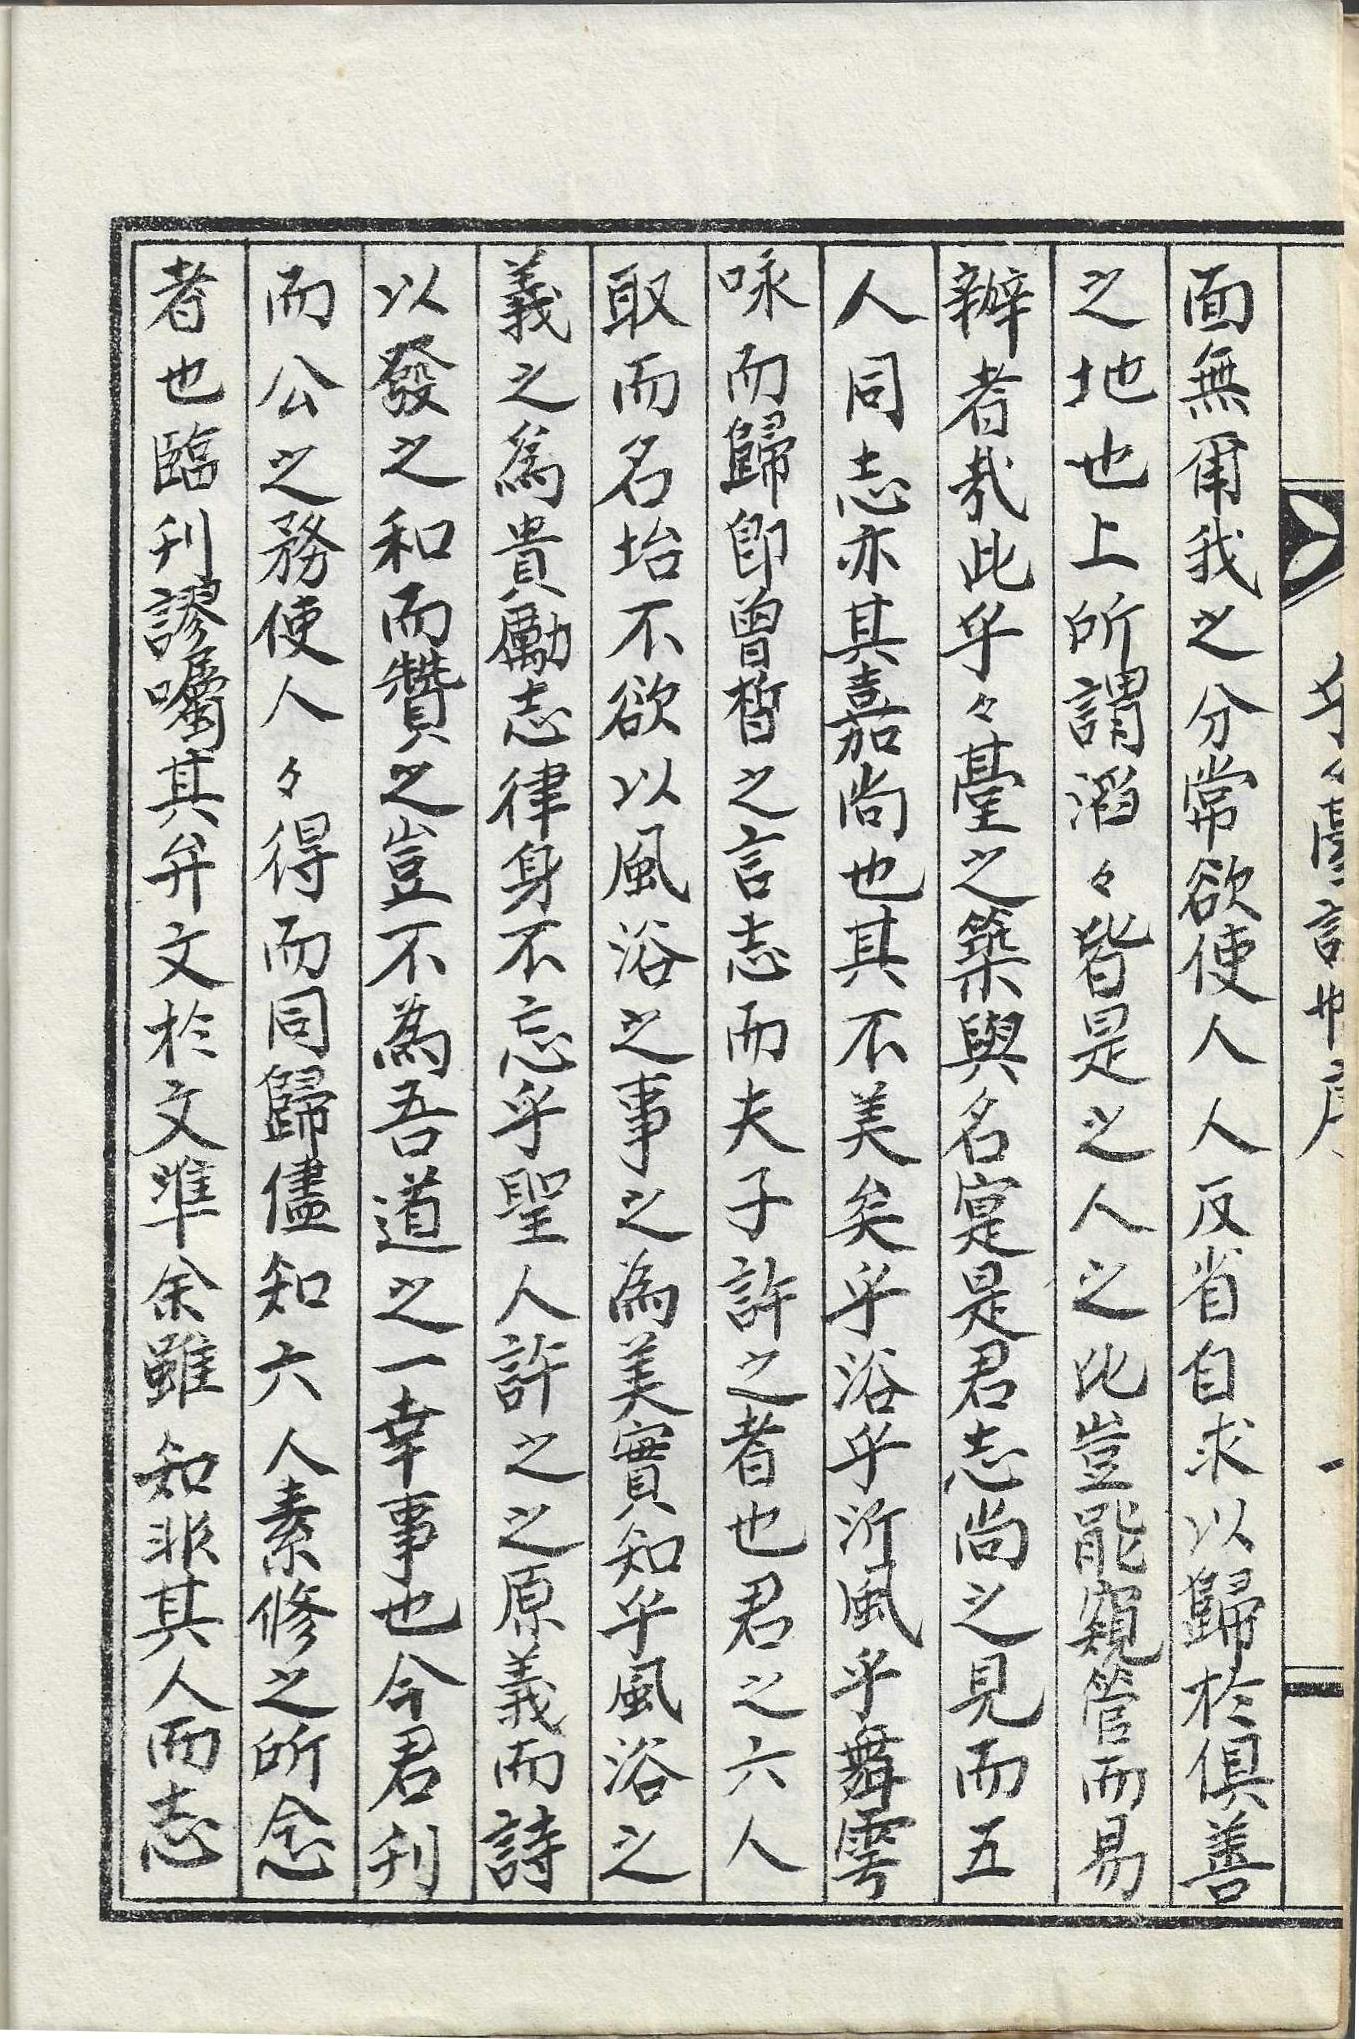 乎々臺詩帖序 一
面無爾我之分常欲使人人反省自求以歸於俱善
之地也上所謂滔々皆是之人之比豈能窺管而易
辦者哉此乎々臺之築與名寔是君志尚之見而五
人同志亦其嘉尚也其不美矣乎浴乎沂風乎舞雩
咏而歸即曾晳之言志而夫子許之者也君之六人
取而名坮不欲以風浴之事之為美實知乎風浴之
義之爲貴勵志律身不忘乎聖人許之之原義而詩
以發之和而贊之豈不為吾道之一幸事也今君刊
而公之務使人々得而同歸儘知六人素修之所念
者也臨刊謬囑其弁文於文準余雖知非其人而志